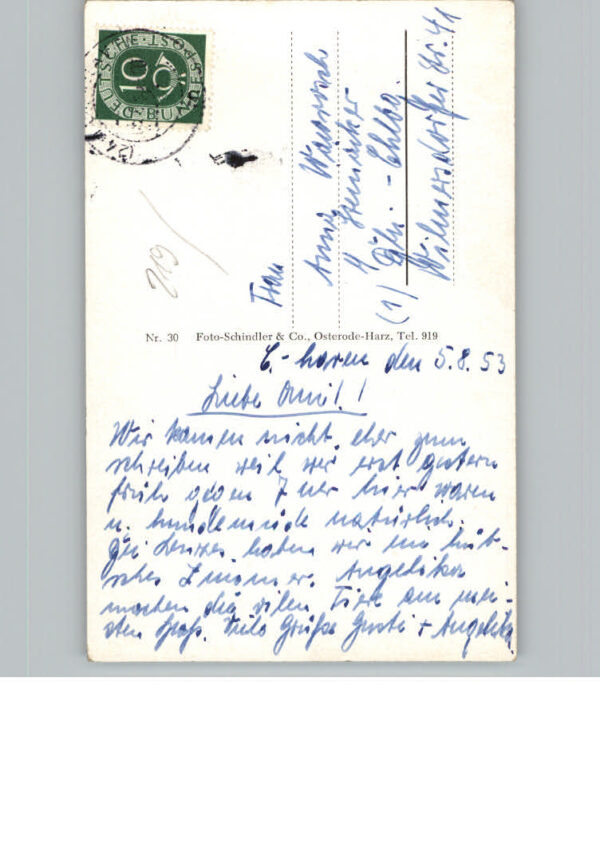 DEUTSCHE BUNDESPOST
10
219
Frau
Anni
b/ Steinicker
(1) Bln.-Chlbg.
Wilmersdorfer Str. 41
Nr. 30 Foto-Schindler & Co., Osterode-Harz, Tel. 919
C.-haven den 5.8.53
Liebe Omi!!
Wir kamen nicht eher zum
schreiben weil wir erst gestern
früh gegen 7 Uhr hier waren
u. hundemüde natürlich.
Bei haben wir ein hüb-
sches Zimmer. Angelika
machen die vilen Tiere am mei-
sten Spaß. Viele Grüße Gusti + Angelika